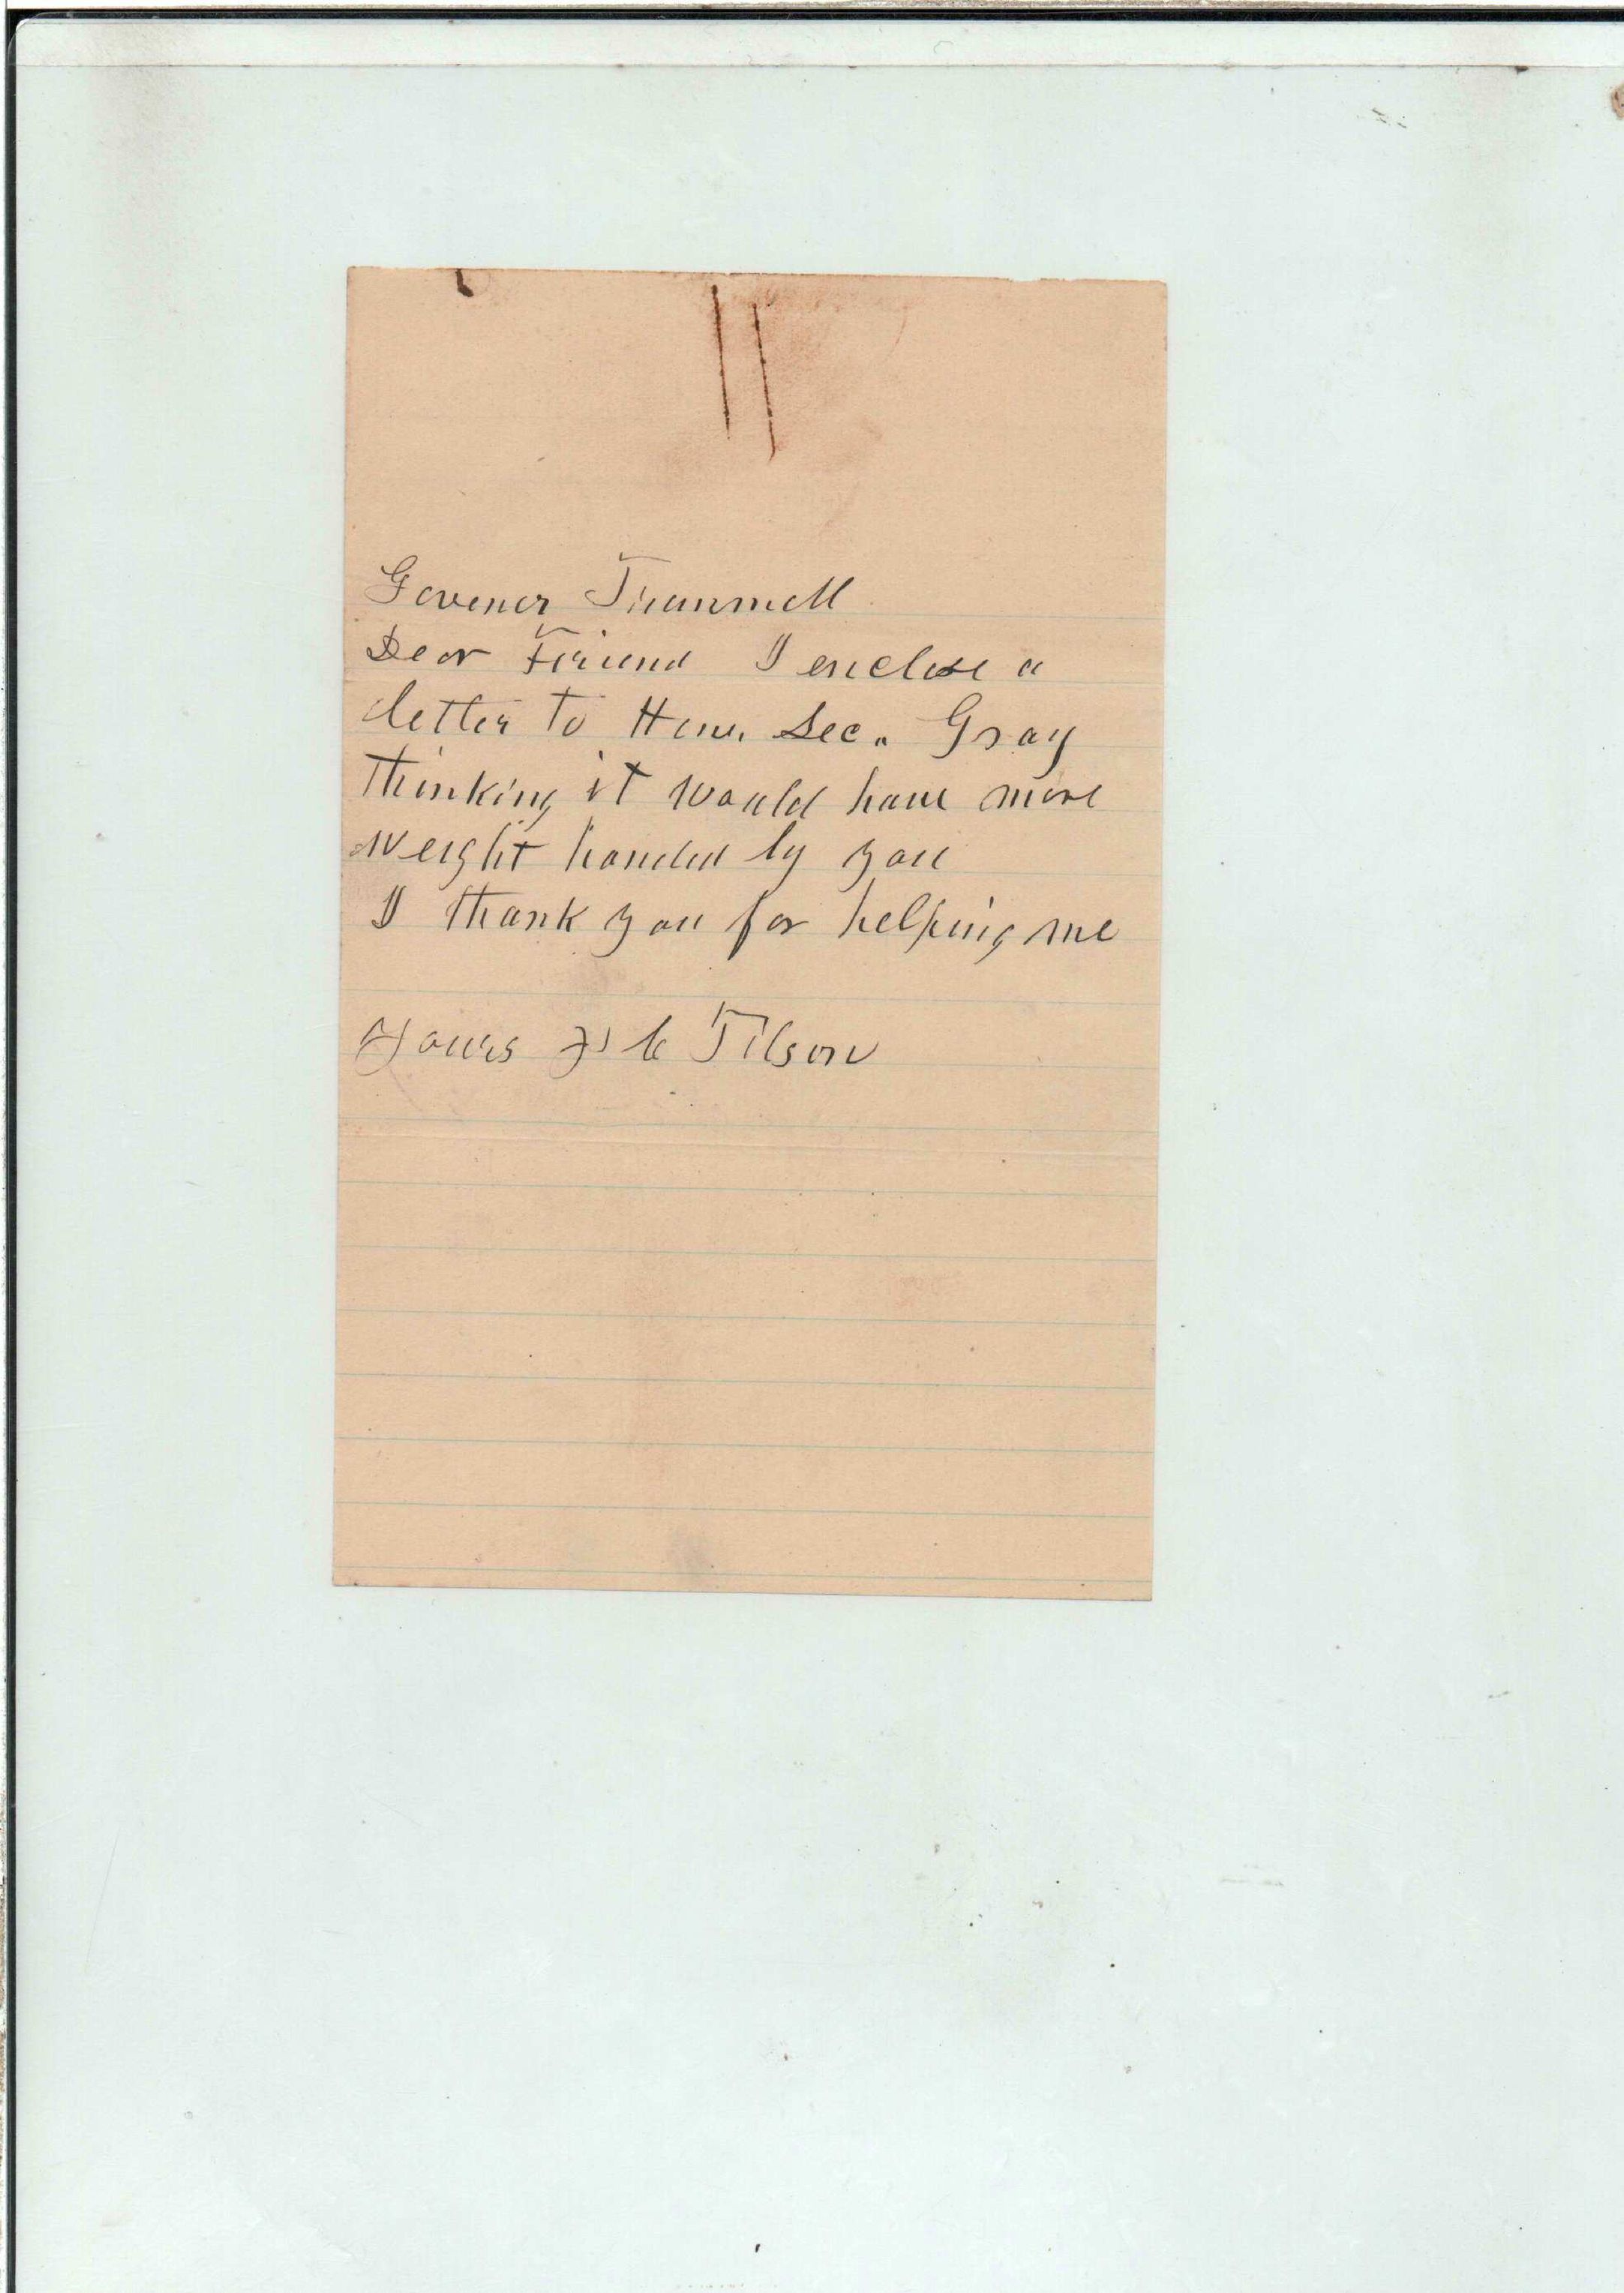 Govener Trammell
Dear Friend I enclose a
letter to Hon. Sec. Gray
thinking it would have more
weight handed by you
I thank you for helping me
Yours Tilson